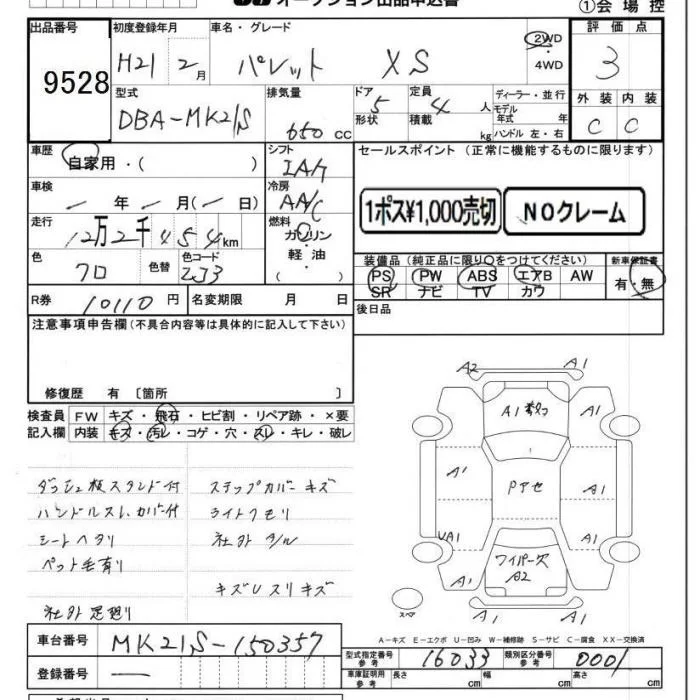 オークション出品申込書
①会場控
出品番号 9528
初度登録年月 H21年 2月
車名・グレード パレット XS
2WD
・
4WD
評価点 3
型式 DBA-MK21S
排気量 650 cc
ドア 5 形状
定員 4 人 積載 kg
ディーラー・並行
モデル年式 年
ハンドル 左・右
外装 内装
C C
車歴 自家用・( )
シフト IAT
セールスポイント(正常に機能するものに限ります)
車検 年 月( 日)
冷房 AA/C
1ポス¥1,000売切 NOクレーム
走行 12万2千454km
燃料 ガソリン・軽油・( )
色 クロ 色替 色コード ZJ3
装備品(純正品に限り○をつけてください)
PS PW ABS エアB AW
SR ナビ TV カワ
新車保証書
有・無
R券 10110円 名変期限 月 日
後日品
注意事項申告欄(不具合内容等は具体的に記入して下さい)
修復歴 有 〔箇所 〕
検査員記入欄
FW キズ・飛石・ヒビ割・リペア跡・×要
内装 キズ・汚レ・コゲ・穴・スレ・キレ・破レ
ダッシュ板スタンド付
ハンドルスレ、カバー付
シートヘタリ
ペット毛有り
社外足廻り
ステップカバーキズ
ライトクモリ
社外マフル
キズUスリキズ
A2 A1
A1 A1
A1 Pアセ A1
UA1 A1
ワイパー欠
A2
A1 A1
スペア
A-キズ E-エクボ U-凹み W-補修跡 S-サビ C-腐食 XX-交換済
車台番号 MK21S-150357
型式指定番号 参考 16033
類別区分番号 参考 0001
登録番号 —
車庫証明用 参考 長さ cm 幅 cm 高さ cm